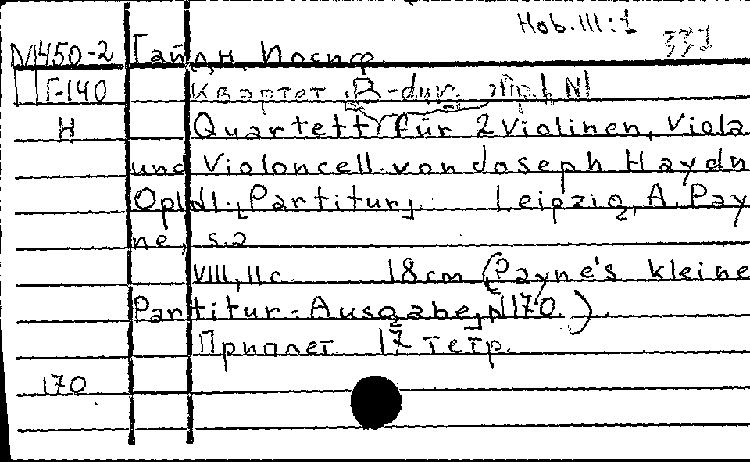 Hob.III:1
331
М450-2 Гайдн, Иосиф
Г-140 Квартет, B-dur, Op.1 N1
Н Quartett für 2 Violinen, Viola
und Violoncell von Joseph Haydn
Op1 N1. Partitur. Leipzig, A. Pay
ne, s.a
VIII, 11 с. 18 cm (Payne's kleine
Partitur-Ausgabe, N170).
Приплет 17 тетр.
170